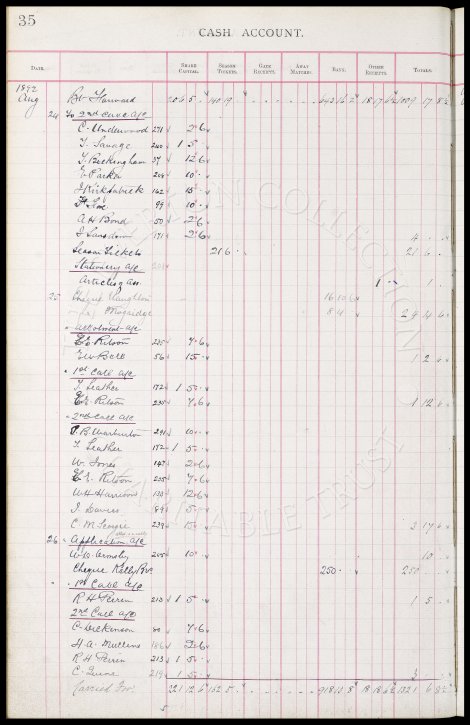 35
CASH ACCOUNT.
DATE. SHARE CAPITAL. SEASON TICKETS. GATE RECEIPTS. AWAY MATCHES. BANK. OTHER RECEIPTS. TOTALS.
1892
Aug Bt Forward 206 5 140 19 643 16 2 18 17 6 1009 17 8
24 To 2nd Call a/c
C. Underwood 271 2 6
T. Savage 240 1 5
T. Buckingham 57 12 6
E. Parker 204 10
J Kirkpatrick 162 15
99 10
A H Bond 50 2 6
J Lunsdon 171 2 6 4
Season Tickets 21 6 21 6
Stationery a/c
Articles of Ass 1 1
25 Cheque 16 10 6
8 4 24 14 6
Allotment a/c
E. Ritson 235 7 6
E W Bell 56 15 1 2 6
1st Call a/c
T. Leather 172 1 5
E. Ritson 235 7 6 1 12 6
2nd Call a/c
B Warburton 291 10
T. Leather 172 1 5
W. Jones 147 2 6
E. Ritson 235 7 6
W H Harrison 130 12 6
J. Davies 89 5
C. M 239 15 3 17 6
26 Application a/c
W. W. Ormsby 245 10 10
Cheque Kelly Bros 250 250
1st Call a/c
R H Perrin 213 1 5 1 5
2nd Call a/c
C. Dickinson 80 7 6
H. A. Mullens 186 2 6
R H Perrin 213 1 5
C. 219 1 5 3
Carried For 221 12 6 162 5 918 10 8 18 18 6 1321 6 8
COLLECTION
CHARITABLE TRUST